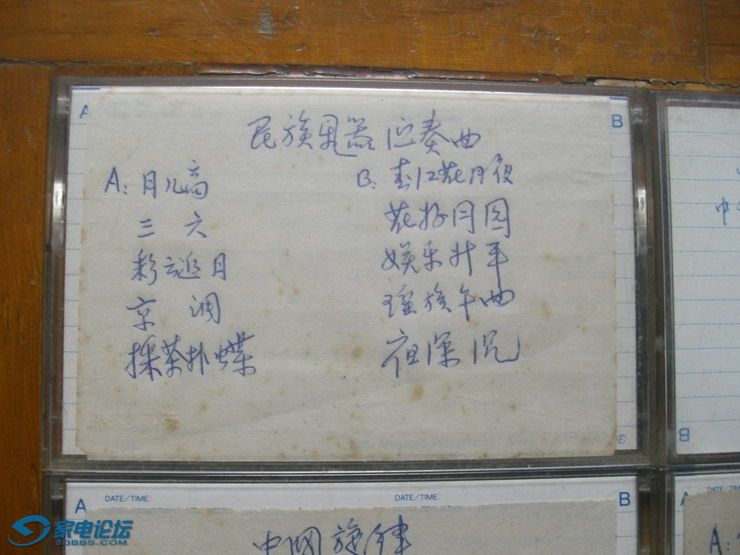 A
B
民族乐器 奏曲
A: 月儿高
B: 春江花月夜
三 六
花好月园
彩云追月
娱乐升平
京 调
瑶族午曲
採茶扑蝶
夜深沉
中
B
A DATE/TIME DATE/TIME B
A
中国旋律
A:
家电论坛
JDBBS.COM